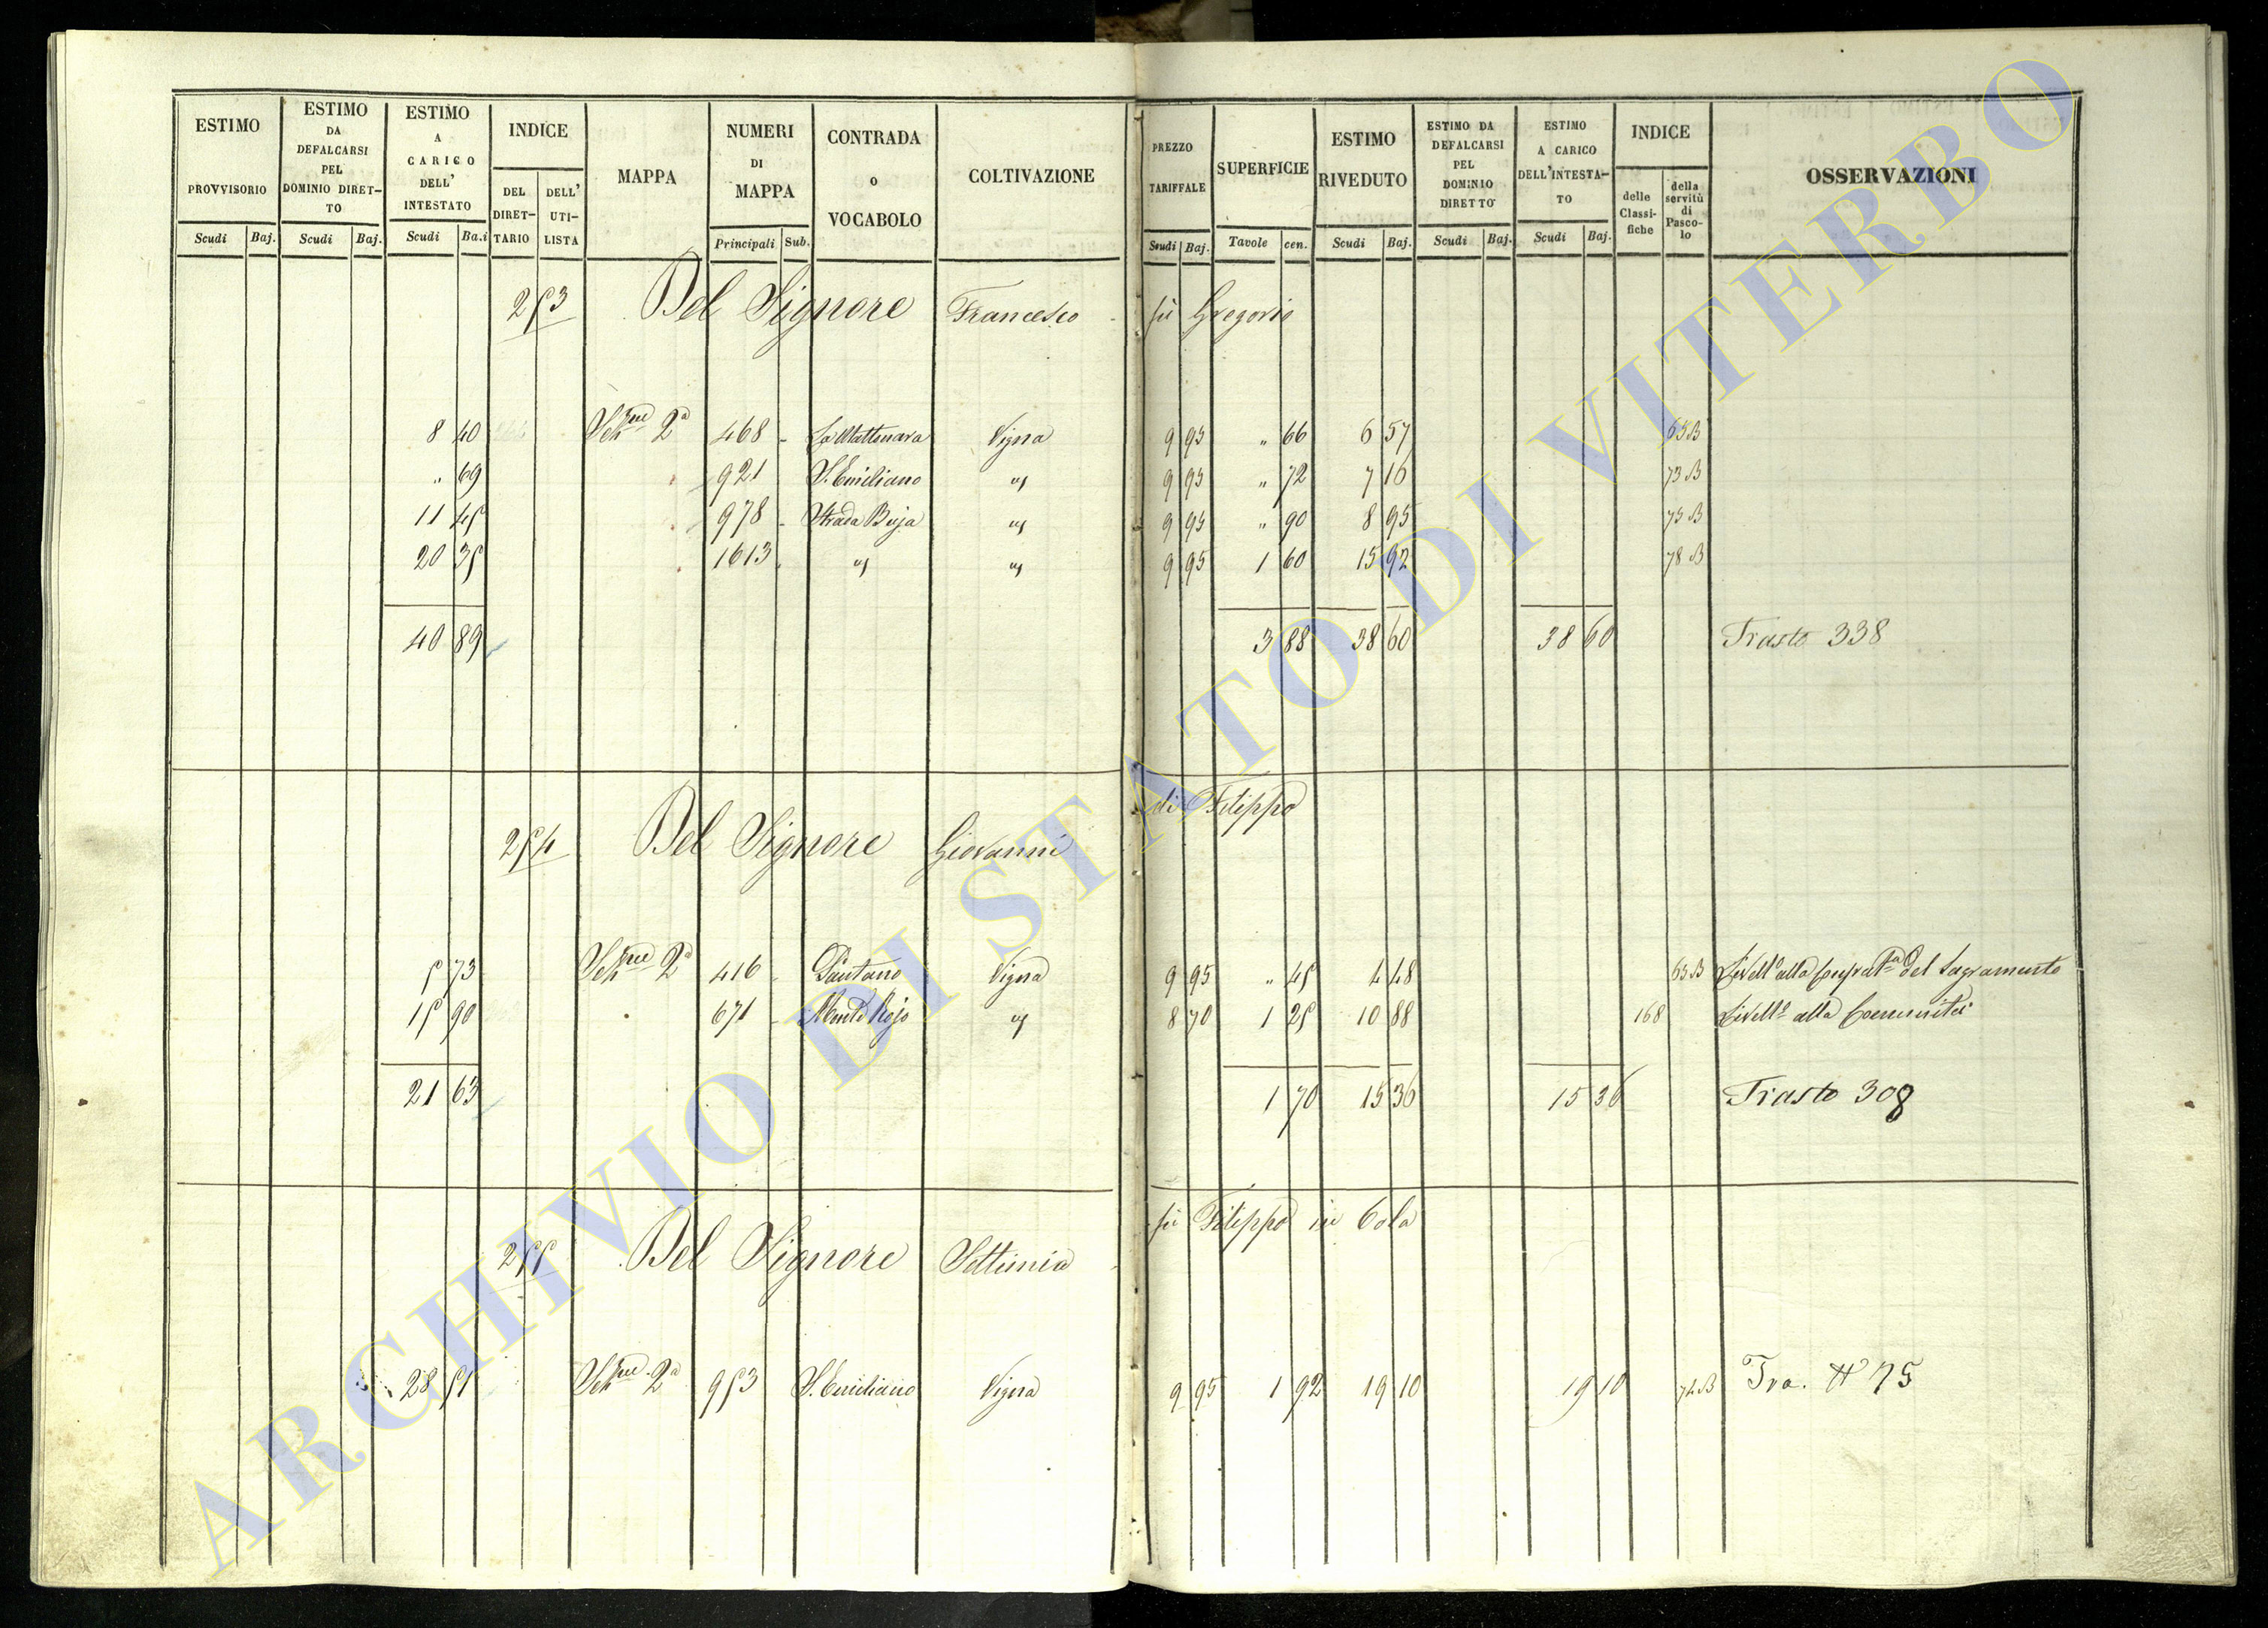 ESTIMO PROVVISORIO Scudi Baj.
ESTIMO DA DEFALCARSI PEL DOMINIO DIRET-TO Scudi Baj.
ESTIMO A CARICO DELL' INTESTATO Scudi Ba.i
INDICE DEL DIRET-TARIO DELL' UTI-LISTA
MAPPA
NUMERI DI MAPPA Principali Sub.
CONTRADA O VOCABOLO
COLTIVAZIONE
PREZZO TARIFFALE Scudi Baj.
SUPERFICIE Tavole cen.
ESTIMO RIVEDUTO Scudi Baj.
ESTIMO DA DEFALCARSI PEL DOMINIO DIRETTO Scudi Baj.
ESTIMO A CARICO DELL'INTESTA-TO Scudi Baj.
INDICE delle Classi-fiche della servitù di Pasco-lo
OSSERVAZIONI
253 Del Signore Francesco fù Gregorio
8 40 Sez.ne 2a 468 - La Mattonara Vigna 9 95 " 66 6 57 65 B
" 69 921 S. Emiliano " 9 95 " 72 7 16 73 B
11 45 978 - Strada Buja " 9 95 " 90 8 95 75 B
20 35 1613 " " 9 95 1 60 15 92 78 B
40 89 3 88 38 60 38 60 Trasto 338
254 Del Signore Giovanni di Filippo
5 73 Sez.ne 2a 416 - Pantano Vigna 9 95 " 45 4 48 63 B Livello alla Confrat.a del Sagramento
15 90 671 - Monte Rojo " 8 70 1 25 10 88 168 Livello alla Comunità
21 63 1 70 15 36 15 36 Trasto 308
255 Del Signore Settimia fù Filippo in Cola
28 51 Sez.ne 2a 953 S. Emiliano Vigna 9 95 1 92 19 10 19 10 74 B Tra. N° 75
ARCHIVIO DI STATO DI VITERBO